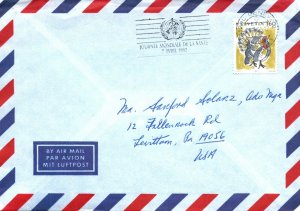 HELVETIA
JOURNÉE MONDIALE DE LA SANTÉ
7 AVRIL 1992
Mr. Sanford Solarz,
12 Fallenrock Rd
Levittown, Pa 19056
USA
BY AIR MAIL
PAR AVION
MIT LUFTPOST